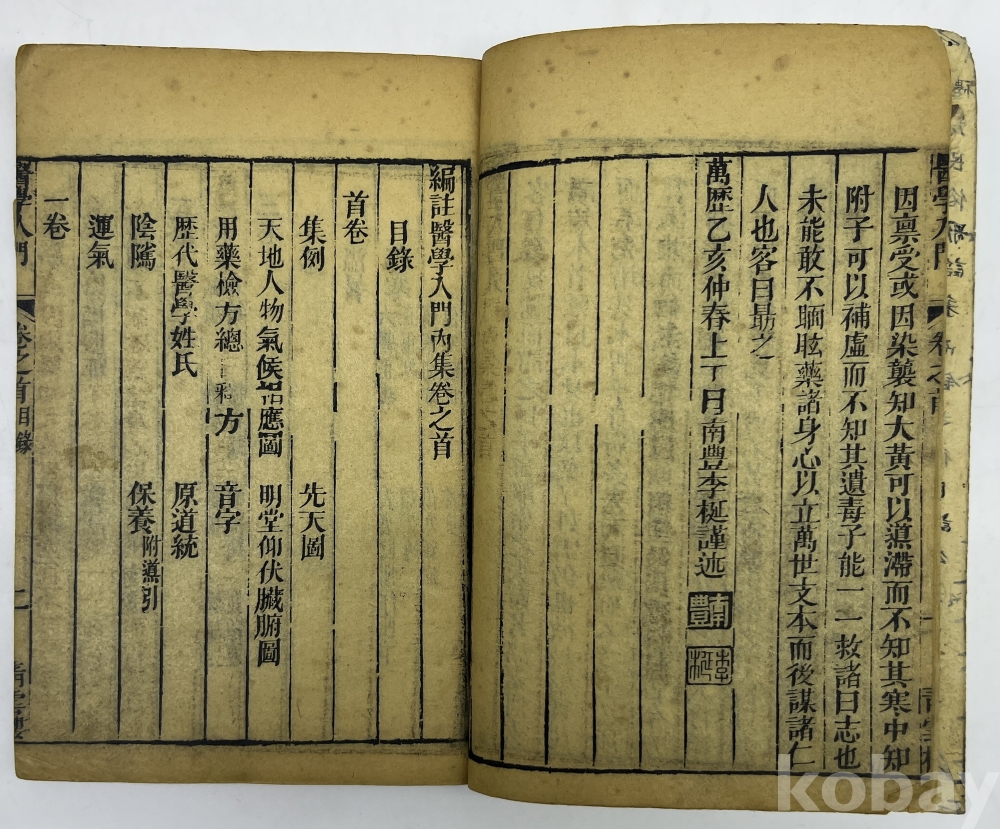 因禀受或因染襲知大黃可以導滯而不知其寒中知
附子可以補虛而不知其遺毒子能一一救諸曰志也
未能敢不瞑眩藥諸身心以立萬世文本而後謀諸仁
人也客曰勗之
萬歷乙亥仲春上丁日南豐李梴謹述
南豐
李梴
編註醫學入門內集卷之首
目錄
首卷
集例 先天圖
天地人物氣候相應圖 明堂仰伏臟腑圖
用藥檢方總 方 音字
歷代醫學姓氏 原道統
陰隲 保養附導引
運氣
一卷
醫學入門 卷之首目錄
醫學入門 卷之首
kobay